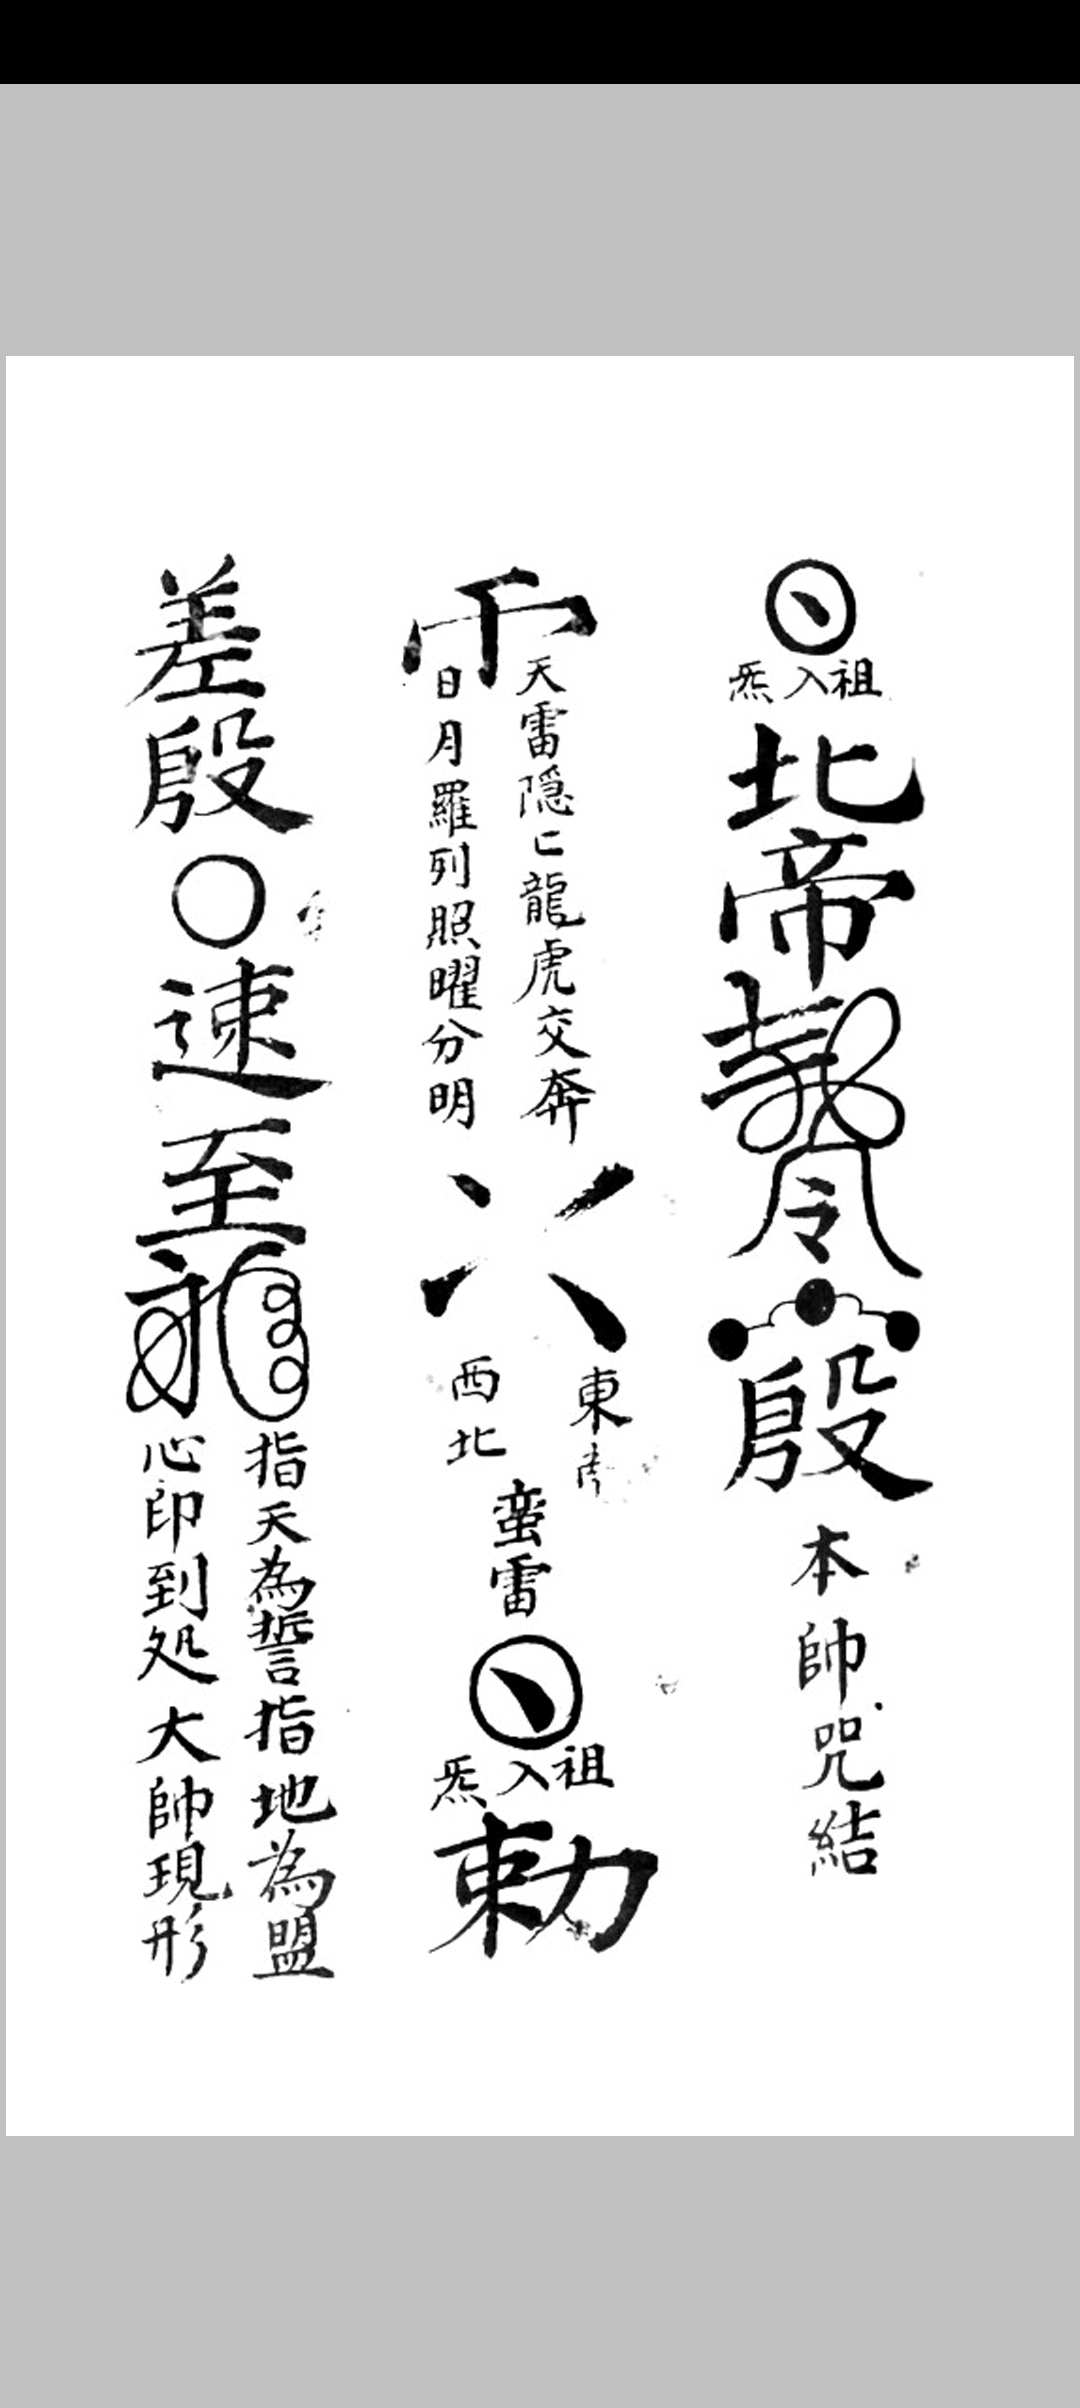 祖入炁
北帝
令
殷
本帥咒結
天雷隠匸龍虎交奔
日月羅列照曜分明
東
西北
蛮雷
祖入炁
勅
差殷
速至
指天為誓指地為盟
心印到処大帥現形